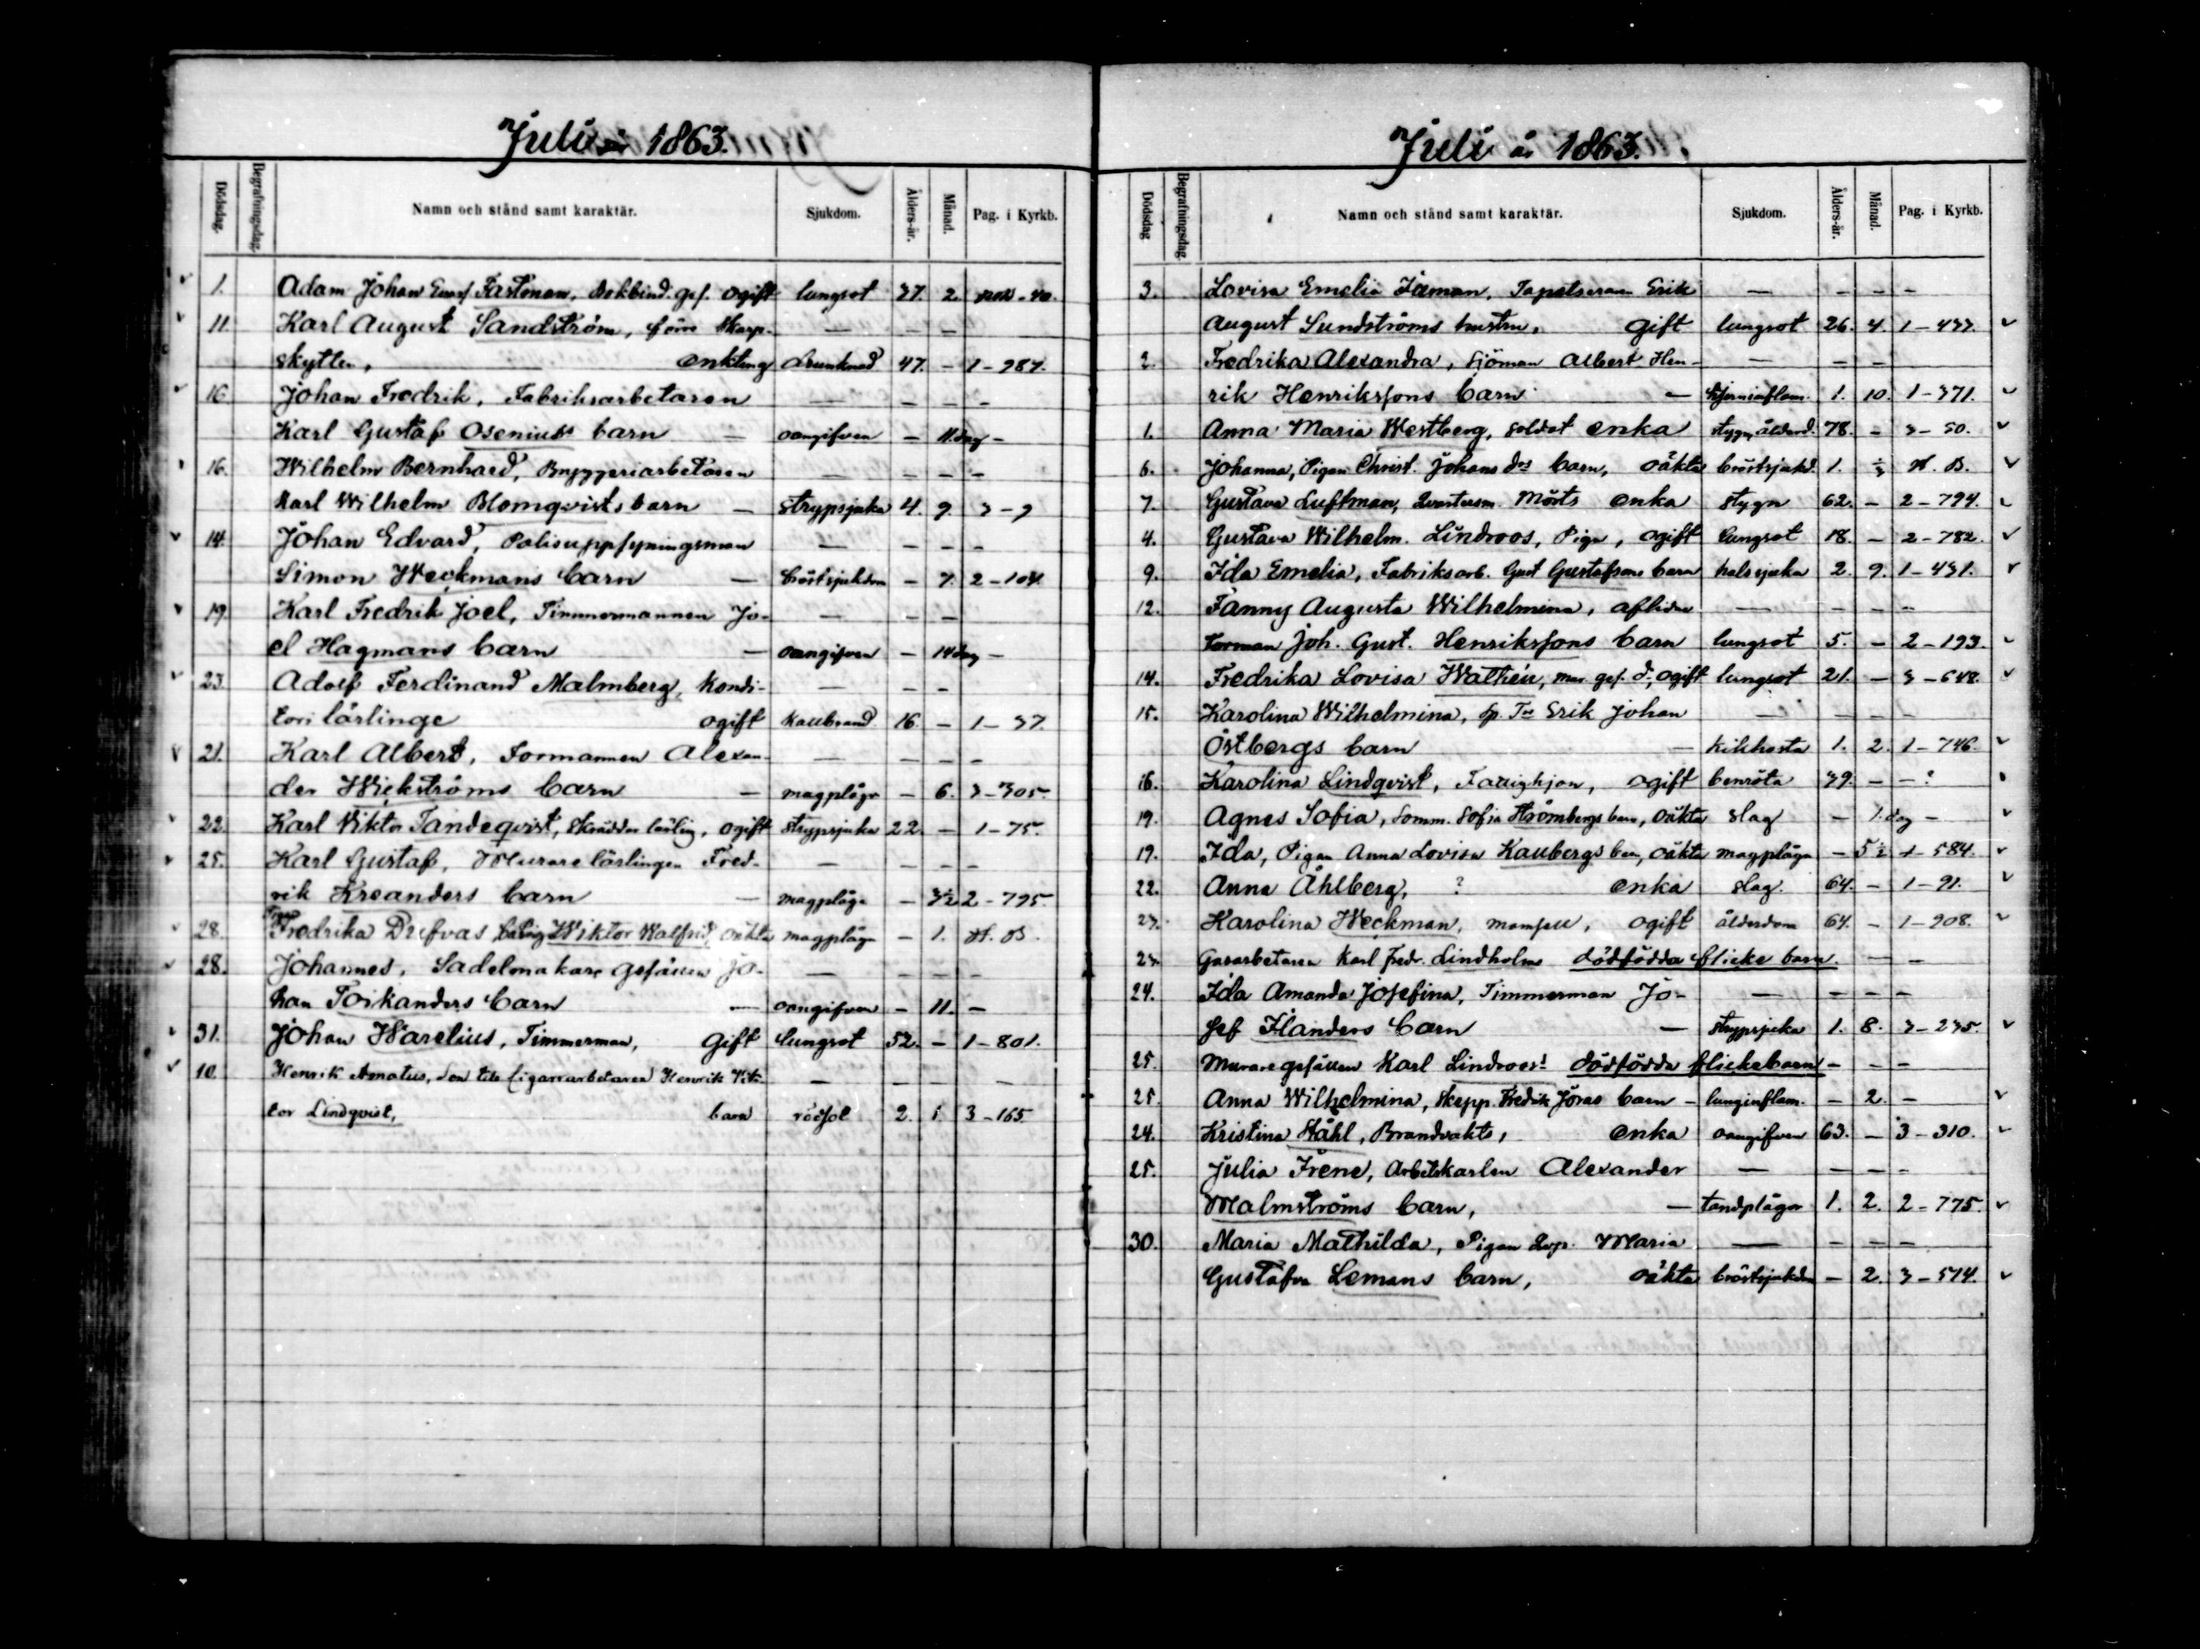 Juli år 1863.
Dödsdag. Begrafningsdag. Namn och stånd samt karaktär. Sjukdom. Ålders-år. Månad. Pag. i Kyrkb.
1. Adam Johan Fastman, Bokbind. gef. ogift lungsot 37. 2.
11. Karl August Sandström, förre Skarp- — — —
skytten, enkling Drunknad 47. — 1-287.
16. Johan Fredrik, Fabriksarbetaren — — — —
Karl Gustaf Osenius's barn — oangifven — 11. dag —
16. Wilhelm Bernhard, Bryggeriarbetaren — — —
Karl Wilhelm Blomqvists barn — strypsjuka 4. 9. 3-9
14. Johan Edvard, Polisuppsyningsman — — — —
Simon Weckmans barn — bröstsjukdom — 7. 2-104.
19. Karl Fredrik Joel, Timmermannen Jo- — — —
el Hagmans barn — oangifven — 14 dag —
23. Adolf Ferdinand Malmberg, Kondi- — — —
tori lärlinge ogift Kallbrand 16. — 1-37.
21. Karl Albert, Formannen Alexan- — — — —
der Wickströms barn — magplåga — 6. 3-305.
22. Karl Viktor Tandeqvist, Skräddar lärling, ogift strypsjuka 22. — 1-75.
25. Karl Gustaf, Murarelärlingen Fred- — — — —
rik Kreanders barn — magplåga — 3½ 2-795.
28. Pigan Fredrika Dufvas barn Wiktor Walfrid, oäkta magplåga — 1. N. B.
28. Johannes, Sadelmakare Gesällen Jo- — — — —
han Toikanders barn — oangifven — 11. —
31. Johan Warelius, Timmerman, Gift lungsot 52. — 1-801.
10. Henrik Amatus, den tite Cigarrarbetaren Henrik Vik- — — — —
tor Lindqvist, barn rödsot 2. 1. 3-165.
Juli år 1863.
Dödsdag Begrafningsdag. Namn och stånd samt karaktär. Sjukdom. Ålders-år. Månad. Pag. i Kyrkb.
3. Lovisa Emelia Iäman, Tapetseraren Erik — — — —
August Sundströms hustru, Gift lungsot 26. 4. 1-433.
2. Fredrika Alexandra, Sjöman Albert Hen- — — —
rik Henrikssons barn — hjerninflam. 1. 10. 1-371.
1. Anna Maria Westberg, soldat enka stygn, ålderd. 78. — 3-50.
6. Johanna, Pigan Christ. Johans drs barn, oäkta bröstsjukd. 1. ½ N. B.
7. Gustava Luftman, Qvarterm. Mörts enka stygn 62. — 2-794.
4. Gustava Wilhelm. Lindroos, Piga, ogift lungsot 18. — 2-782.
9. Ida Emelia, Fabriksarb. Gust Gustafssons barn halssjuka 2. 9. 1-431.
12. Fanny Augusta Wilhelmina, aflidne — — — —
Forman Joh. Gust. Henrikssons barn lungsot 5. — 2-193.
14. Fredrika Lovisa Wathén, mur. gef. d., ogift lungsot 21. — 3-648.
15. Karolina Wilhelmina, Erik Johan — — — —
Östbergs barn — kikhosta 1. 2. 1-746.
16. Karolina Lindqvist, Fattighjon, ogift benröta 39. — — ?
19. Agnes Sofia, Somm. Sofia Strömbergs barn, oäkta slag — 1. dag —
19. Ida, Pigan Anna Lovisa Kaubergs barn, oäkta magplåga — 5½ 1-584.
22. Anna Åhlberg, ? enka slag. 64. — 1-91.
23. Karolina Weckman, mamsell, ogift ålderdom 64. — 1-908.
23. Gasarbetaren Karl Fredr. Lindholms dödfödda flicke barn. — —
24. Ida Amanda Josefina, Timmerman Jo- — — — —
sef Flanders barn — strypsjuka 1. 8. 3-235.
25. Muraregesällen Karl Lindroos's dödfödda flickebarn — — —
25. Anna Wilhelmina, Skepp. Fredrik Jöras barn — lunginflam. — 2. —
24. Kristina Ståhl, Brandvakts, enka oangifven 63. — 3-310.
25. Julia Irene, Arbetskarlen Alexander — — — —
Malmströms barn, — tandplågor 1. 2. 2-775.
30. Maria Mathilda, Pigan Maria — — — —
Gustafva Lemans barn, oäkta bröstsjukdom — 2. 3-574.